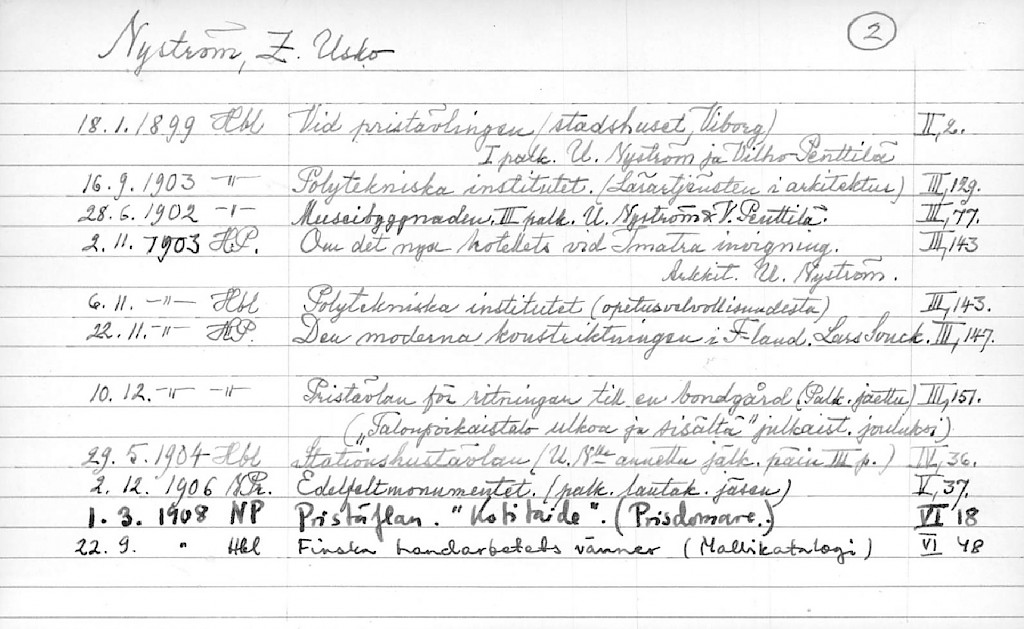 Nyström, Z. Usko
2
18.1.1899 Hbl Vid pristävlingen (stadshuset, Viborg) II,2.
I palk. U. Nyström ja Vilho Penttilä
16.9.1903 -"- Polytekniska institutet. (Lärartjensten i arkitektur) III,129.
28.6.1902 -"- Museibyggnaden. III palk. U. Nyström & V. Penttilä. III,77.
2.11.1903 H.P. Om det nya hotellets vid Imatra invigning. III,143
Arkkit. U. Nyström.
6.11. -"- Hbl Polytekniska institutet (opetusvelvollisuudesta) III,143.
22.11. -"- H.P. Den moderna konstriktningen i F-land. Lars Sonck. III,147.
10.12. -"- -"- Pristävlan för ritningar till en bondgård (Palk. jaettu) III,151.
("Talonpoikaistalo ulkoa ja sisältä" julkaist. jouluksi)
29.5.1904 Hbl Stationshustävlan (U. N:lle annettu jälk. päin III p.) IV,36.
2.12.1906 N.Pr. Edelfeltmonumentet. (palk. lautak. jäsen) V,37.
1.3.1908 NP Pristäflan. "Kotitaide". (Prisdomare.) VI 18
22.9. " Hbl Finska handarbetets vänner (Mallikatalogi) VI 48